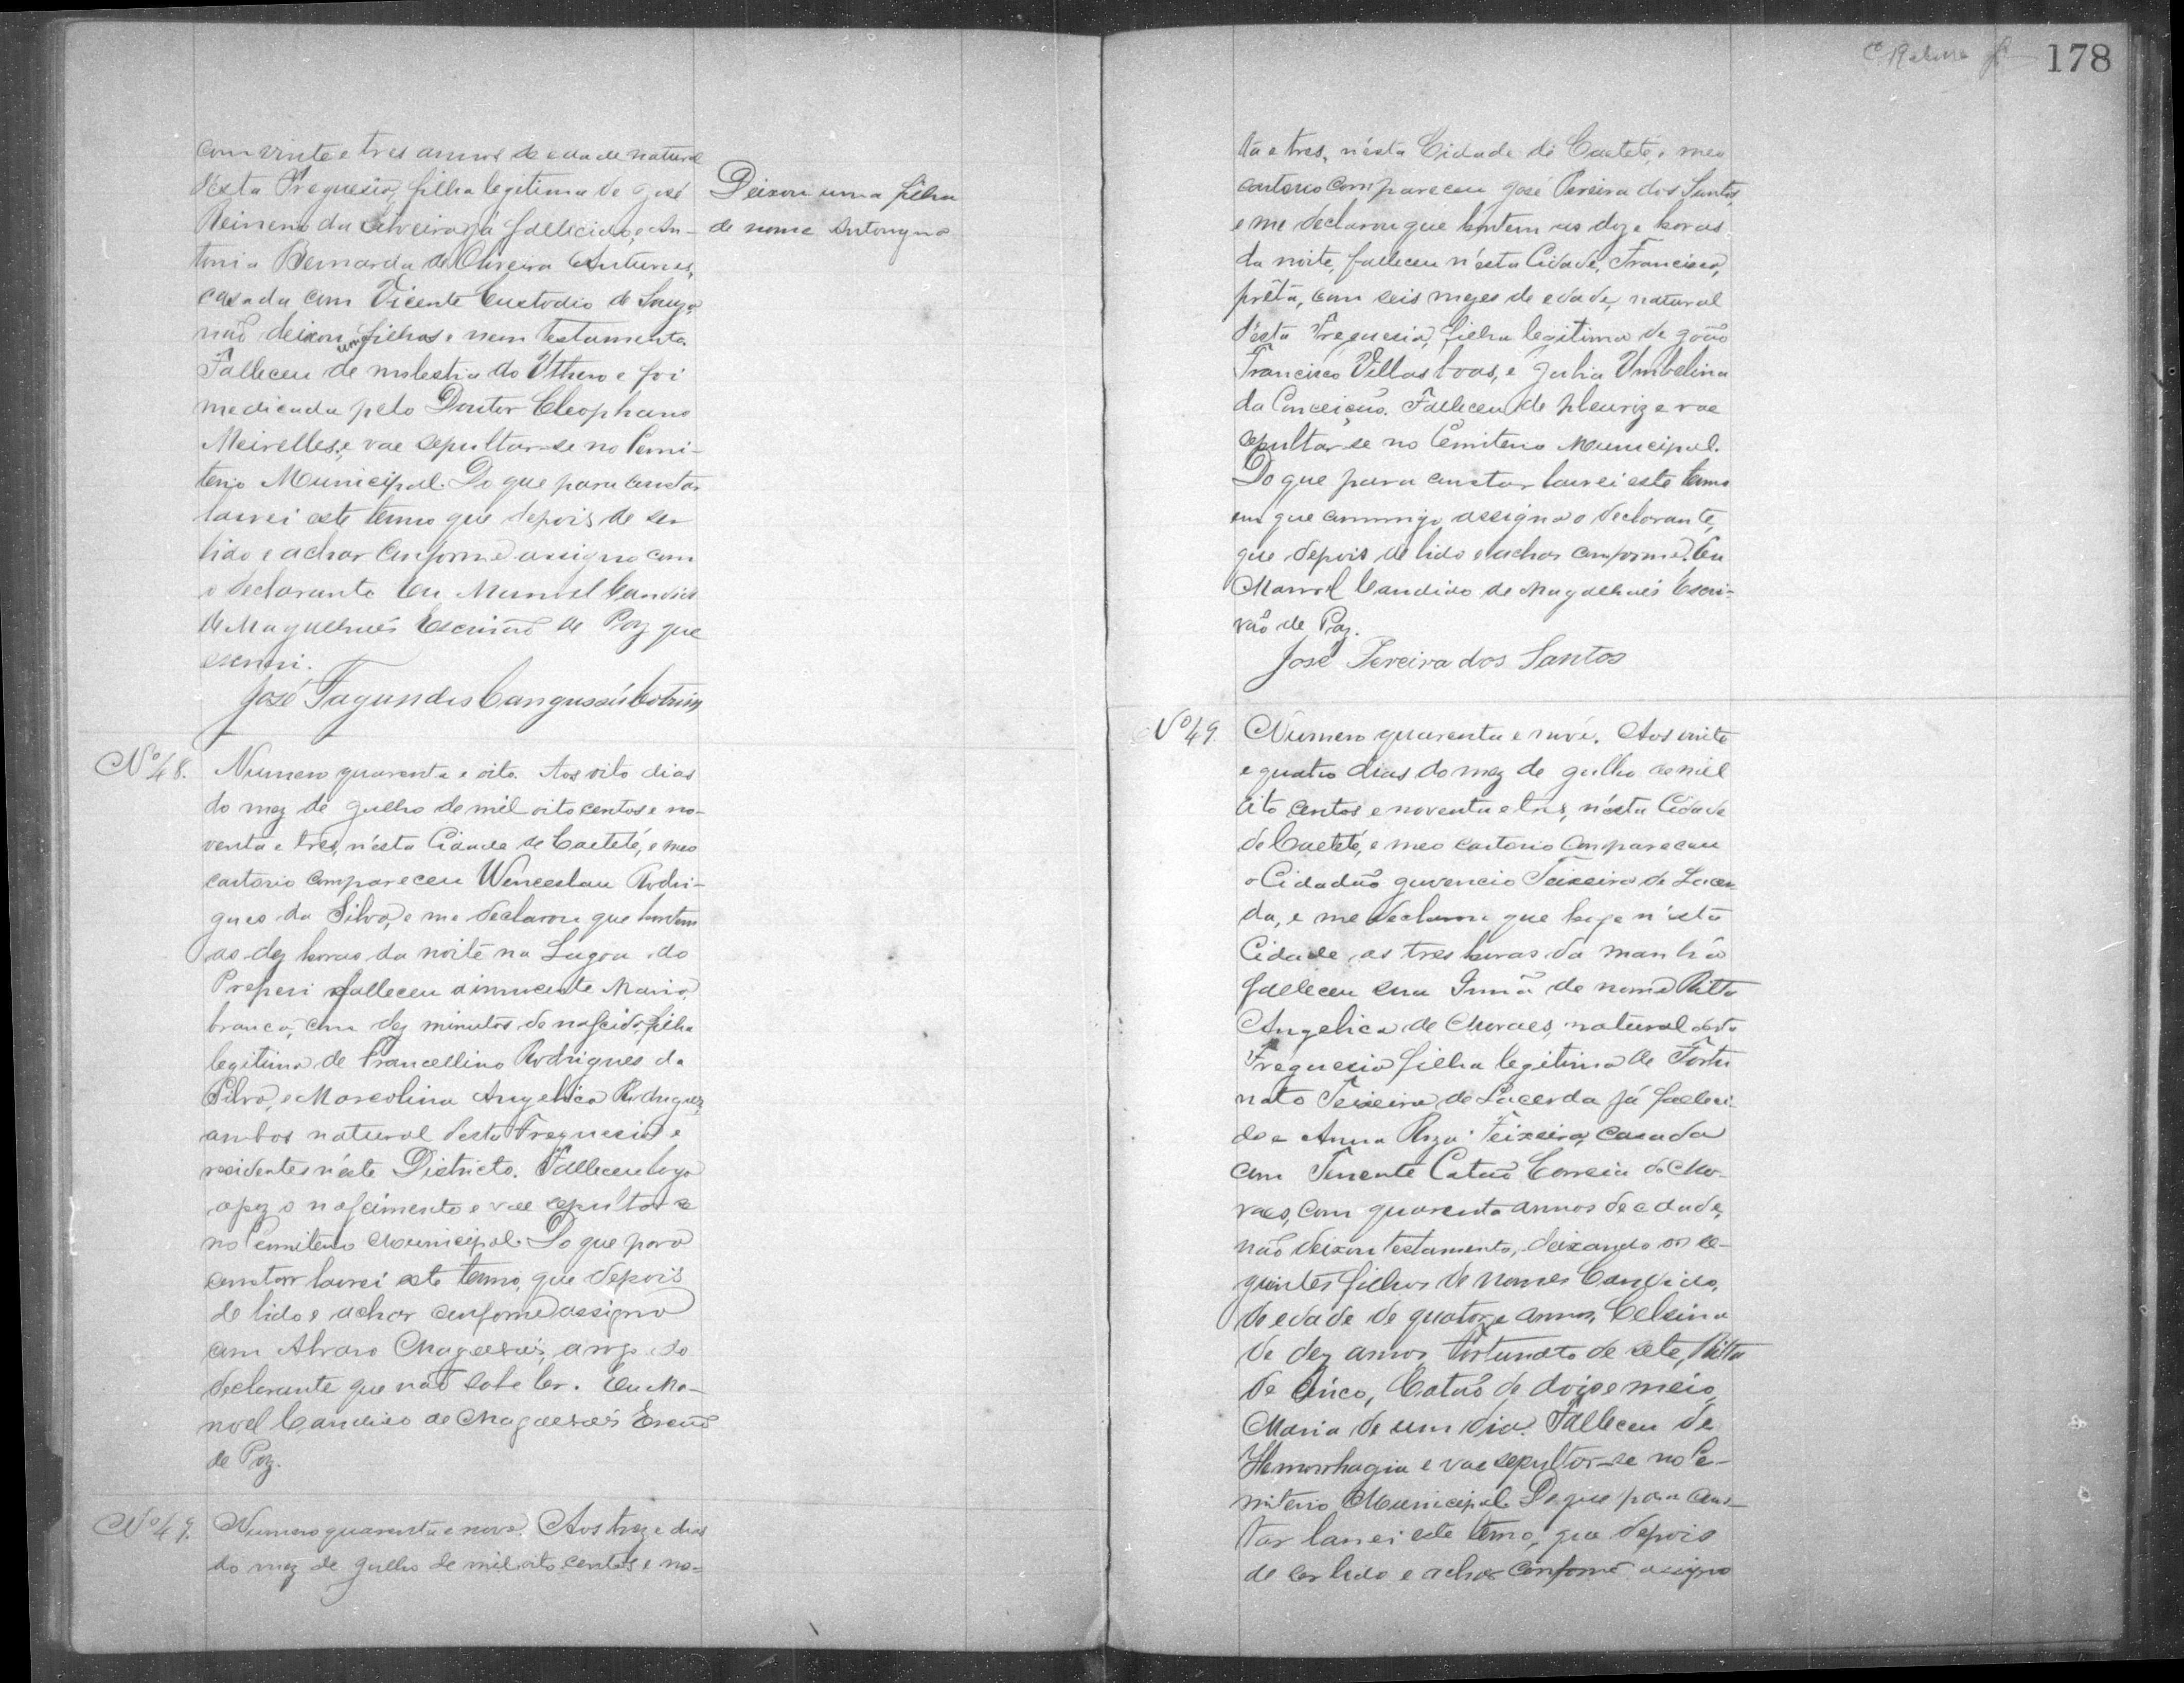 com vinte e tres annos de edade natural
d'esta Freguesia, filha legitima de José
da Silveira já fallecido, e An-
tonia Bernarda de Oliveira Antunes,
casada com Vicente Custodio de Souza
não deixou um filhos e nem testamento.
Falleceu de molestia do Uthero e foi
medicada pelo Doutor Cleophano
Meirelles, e vae sepultar-se no Cemi-
terio Municipal. Do que para constar
lavrei este termo que depois de ser
lido e achar conforme assigno com
o declarante Eu Manoel Candido
de Magalhães Escrivão de Paz que
escrevi.
José Fagundes Cangussú Cotrim
Deixou uma filha
de nome
Nº 48.
Numero quarenta e oito. Aos oito dias
do mez de Julho de mil oito centos e no-
venta e tres, n'esta Cidade de Caeteté, e meo
cartorio compareceu Wenceslau Rodri-
gues da Silva, e me declarou que hontem
as dez horas da noite na Lagoa do
falleceu a innocente Maria,
branca, com dez minutos de nascida, filha
legitima de Francellino Rodrigues da
Silva, e Marcolina Angelica Rodrigues,
ambos natural desta Freguesia e
residentes n'este Districto. Falleceu logo
apoz o nascimento e vae sepultar se
no Cemiterio Municipal. Do que para
constar lavrei este termo, que depois
de lido e achar conforme assigno
com Alvaro Magalhães, a rogo do
declarante que não sabe ler. Eu Ma-
noel Candido de Magalhães Escrivão
de Paz.
Nº 49.
Numero quarenta e nove. Aos treze dias
do mez de Julho de mil oito centos e no-
178
ta e tres, n'esta Cidade de Caeteté, e meu
cartorio compareceu José Pereira dos Santos,
e me declarou que hontem as doze horas
da noite, falleceu n'esta Cidade, Francisca,
prêta, com seis mezes de edade, natural
d'esta Freguesia, filha legitima de João
Francisco Villasboas, e Julia Umbelina
da Conceição. Falleceu de pleuriz e vae
sepultar-se no Cemiterio Municipal.
Do que para constar lavrei este termo
em que commigo assigna o declarante,
que depois de lido e achar conforme. Eu
Manoel Candido de Magalhães Escri-
vão de Paz.
José Pereira dos Santos
Nº 49.
Numero quarenta e nove. Aos vinte
e quatro dias do mez de Julho de mil
oito centos e noventa e tres, n'esta Cidade
de Caeteté, e meo cartorio compareceu
o Cidadão Juvencio Teixeira de Lacer
da, e me declarou que hoje n'esta
Cidade, as tres horas da manhã
falleceu sua Irmã de nome Ritta
Angelica de Moraes, natural desta
Freguesia filha legitima de Fortu
nato Teixeira de Lacerda já falleci-
do e Anna Roza Teixeira, casada
com Tenente Catão Correia de Mo-
raes, com quarenta annos de edade,
não deixou testamento, deixando os se-
guintes filhos de nomes Candido,
de edade de quatorze annos, Celsina
de dez annos, Fortunato de sete, Ritta
de cinco, Catão de dois e meio,
Maria de um dia. Falleceu de
Hemorrhagia e vae sepultar-se no Ce-
miterio Municipal. Do que para cons-
tar lavrei este termo, que depois
de ser lido e achar conforme assigno